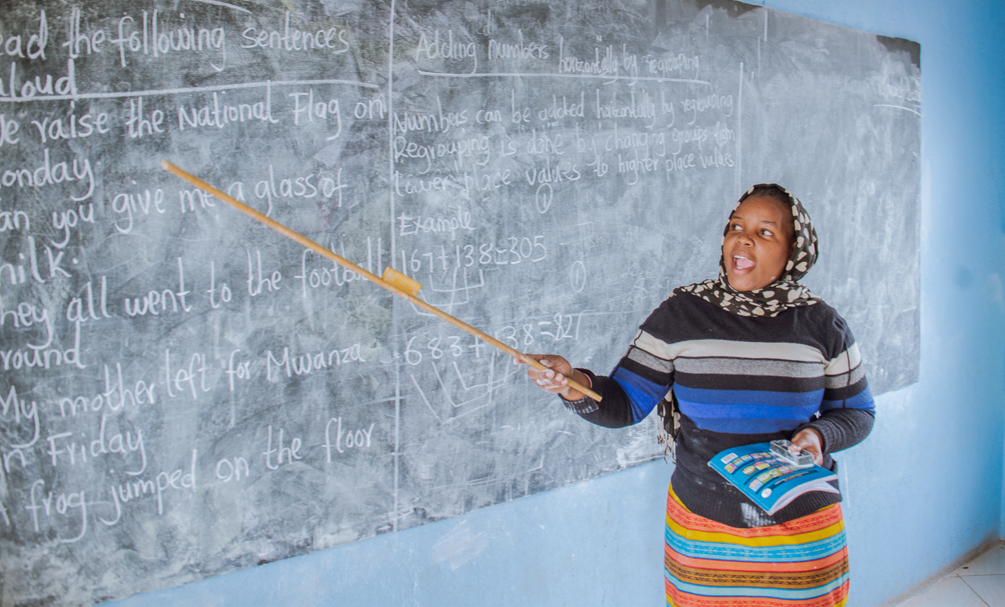 ead the following sentences
aloud
We raise the National Flag on
onday.
an you give me a glass of
milk.
hey all went to the football
round
My mother left for Mwanza
n Friday
frog jumped on the floor
Adding numbers horizontally by regrouping
Numbers can be added horizontally by regrouping
Regrouping is done by changing groups from
lower place values to higher place values
Example
167+138=305
683+138=821